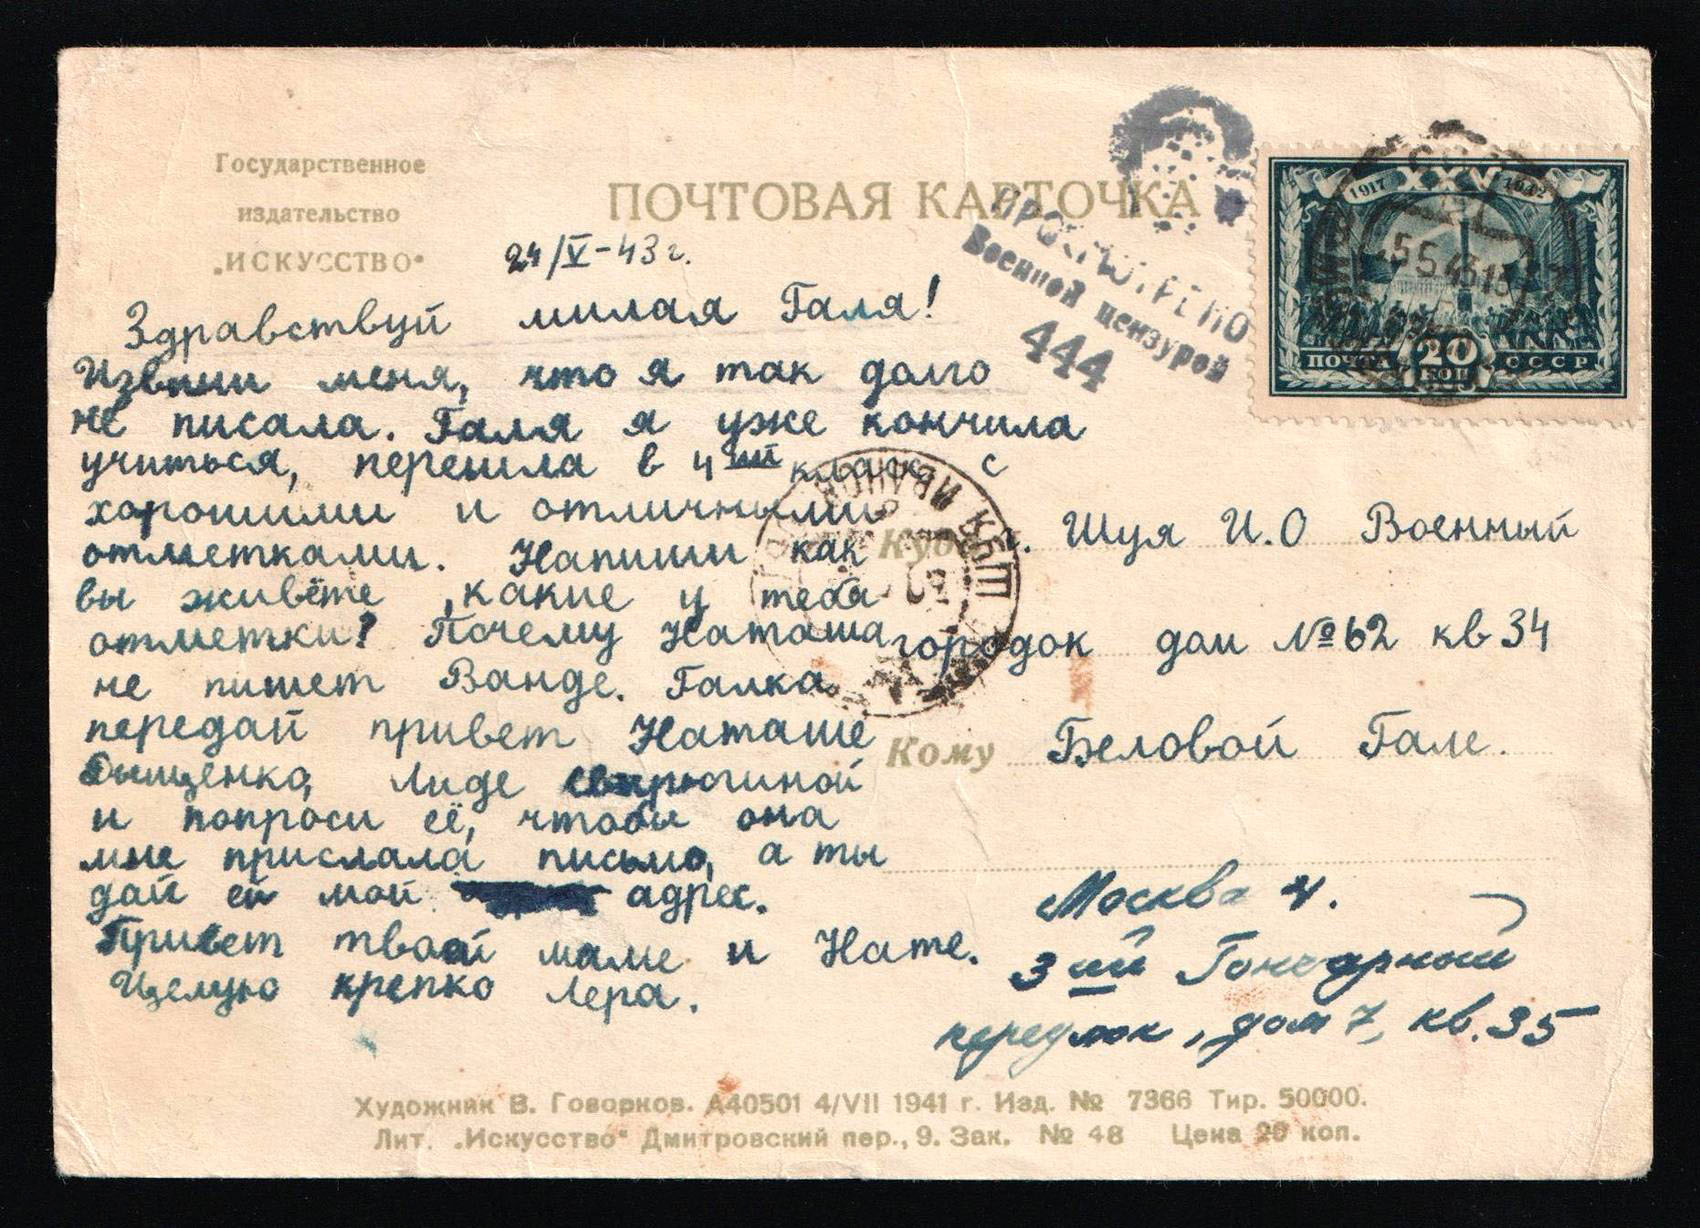 Государственное
издательство
„ИСКУССТВО“
ПОЧТОВАЯ КАРТОЧКА
ПРОСМОТРЕНО
Военной цензурой
444
1917 XXV 1942
ПОЧТА 20 СССР
КОП
24/V-43 г.
Здравствуй милая Галя!
Извини меня, что я так долго
не писала. Галя я уже кончила
учиться, перешла в 4ый класс с
хорошими и отличными
отметками. Напиши как
вы живёте, какие у тебя
отметки? Почему Наташа
не пишет Ванде. Галка
передай привет Наташе
Дыщенко, Лиде
и попроси её, чтобы она
мне прислала письмо, а ты
дай ей мой адрес.
Привет твоей маме и Нате.
Целую крепко Лера.
Куда г. Шуя И.О Военный
городок дом №62 кв 34
Кому Беловой Гале.
Москва 4.
3ий Гончарный
передлок, дом 7, кв. 35
Художник В. Говорков. А40501 4/VII 1941 г. Изд. № 7366 Тир. 50000.
Лит. „Искусство“ Дмитровский пер., 9. Зак. № 48 Цена 20 коп.